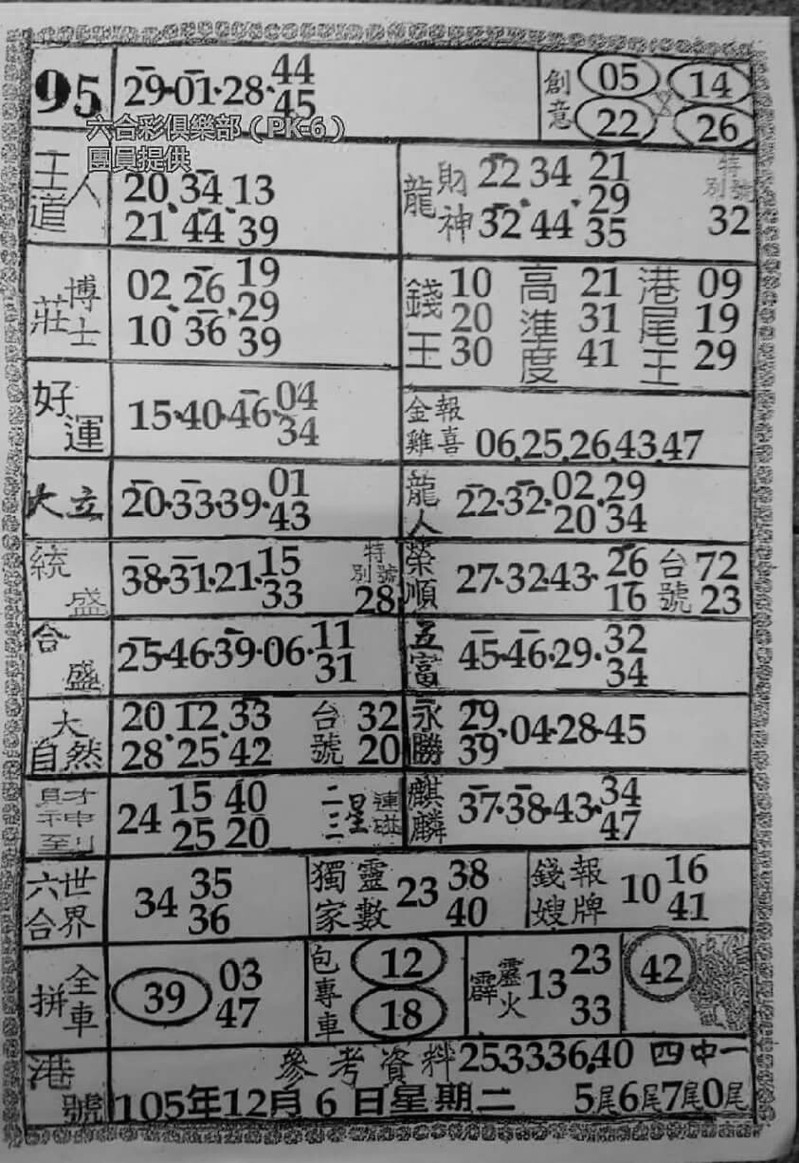 95 29·01·28·44 45
創意 05 14 22 26
六合彩俱樂部（PK-6）
團員提供
王道人 20 34 13
21 44 39
龍 財神 22 34 21 29
32 44 35
特別號 32
莊 博士 02 26 19
10 36 29 39
錢王 10 20 30
高準度 21 31 41
港尾王 09 19 29
好運 15·40·46·04 34
金雞報喜 06.25.26.43.47
大立 20·33·39·01 43
龍人 22·32·02 20·29 34
統盛 38·31·21·15 33 特別號 28
榮順 27·32·43·26 16 台號 72 23
合盛 25·46·39·06·11 31
五富 45·46·29·32 34
大自然 20 12 33
28 25 42
台號 32 20
永勝 29 39·04·28·45
財神到 24 15 40
25 20
二三星連碰
麒麟 37·38·43·34 47
六合世界 34 35 36
獨家靈數 23 38 40
錢嫂報牌 10 16 41
拼全車 39 03 47
包專車 12 18
霹靂火 13 23 33
42
港號 參考資料 25.33.36.40 四中一
105年12月6日星期二 5尾6尾7尾0尾